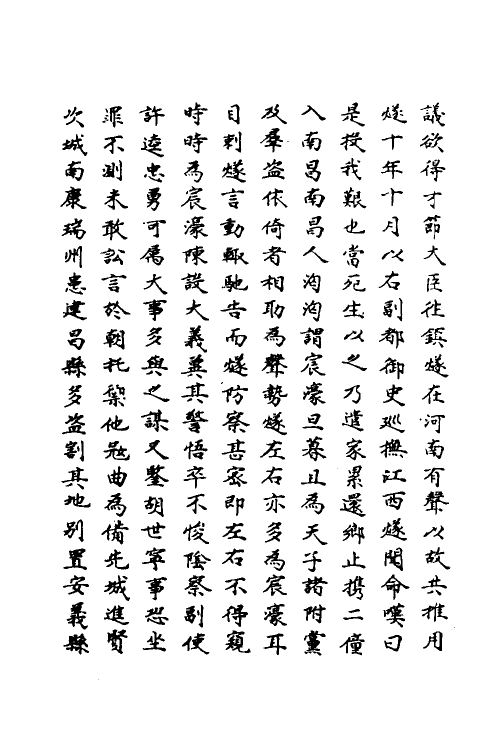 議欲得才節大臣往鎮燧在河南有聲以故共推用
燧十年十月以右副都御史巡撫江西燧聞命嘆曰
是投我艱也當死生以之乃遣家累還鄉止携二僮
入南昌南昌人洶洶謂宸濠旦暮且為天子諸附黨
及羣盗依倚者相助為聲勢燧左右亦多為宸濠耳
目刺燧言動輙馳告而燧防察甚宻即左右不得窺
時時為宸濠陳設大義冀其警悟卒不悛隂察副使
許逵忠勇可屬大事多與之謀又鑒胡世寧事恐坐
罪不測未敢訟言於朝托禦他冦曲為備先城進賢
次城南康瑞州患建昌縣多盗割其地别置安義縣